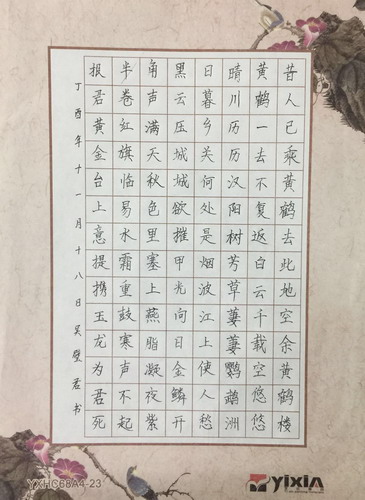 昔人已乘黄鹤去此地空余黄鹤楼
黄鹤一去不复返白云千载空悠悠
晴川历历汉阳树芳草萋萋鹦鹉洲
日暮乡关何处是烟波江上使人愁
黑云压城城欲摧甲光向日金鳞开
角声满天秋色里塞上燕脂凝夜紫
半卷红旗临易水霜重鼓寒声不起
报君黄金台上意提携玉龙为君死
丁酉年十一月十八日吴璧君书
YXHC68A4-23
yixin